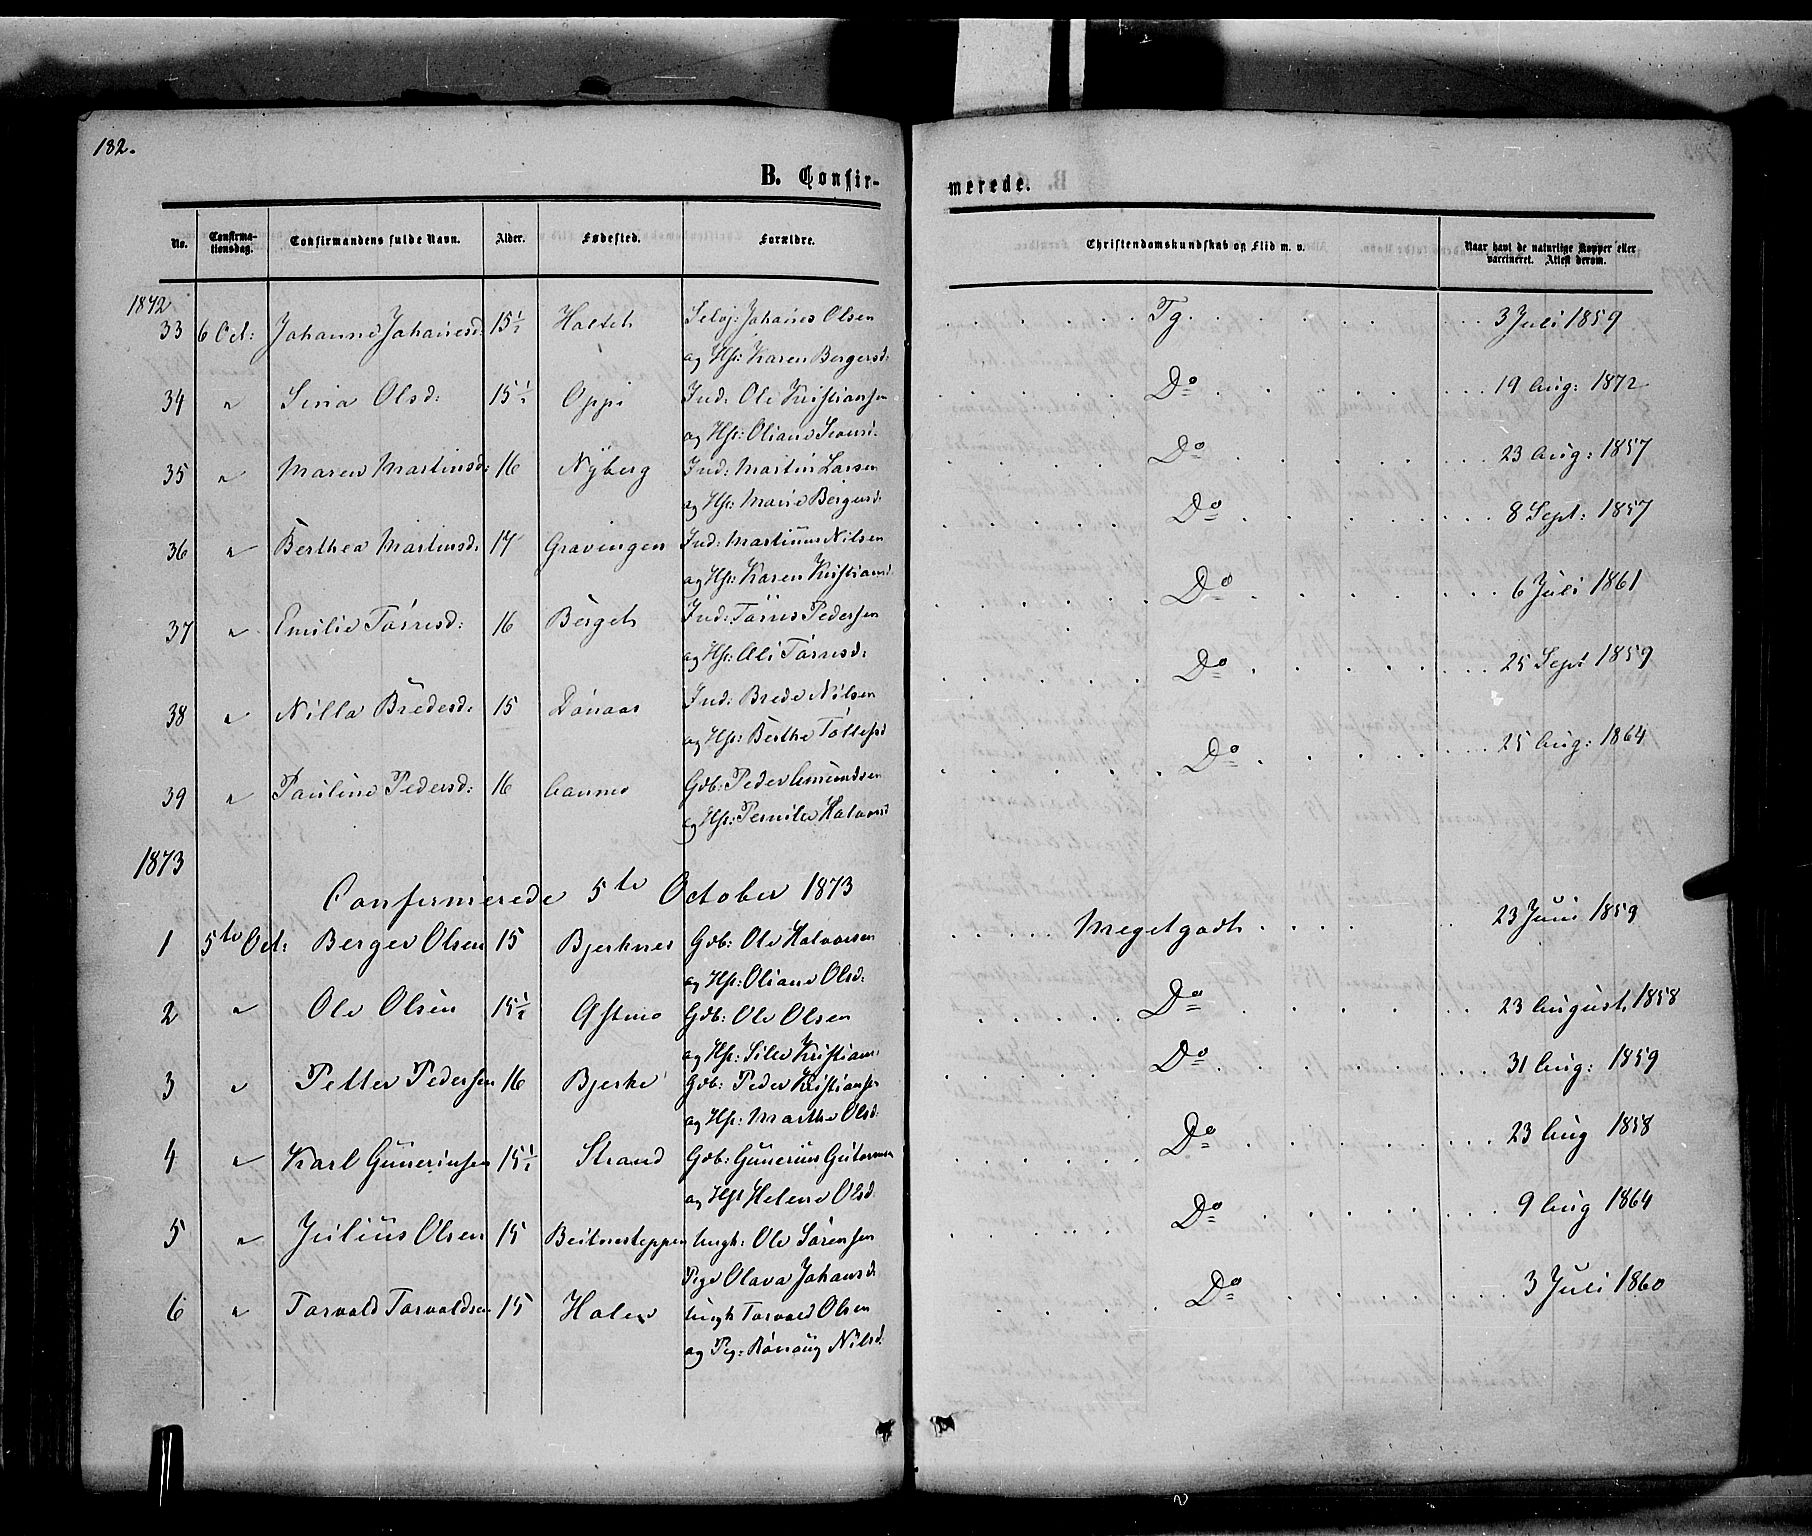 182.
B. Confir-
merede.
No. Confirma-tionsdag. Confirmandens fulde Navn. Alder. Fødested. Forældre. Christendomskundskab og Flid m. v. Naar havt de naturlige Kopper eller vaccineret. Attest derom.
1872
33 6 Oct: Johanne Johanesd: 15½ Holteh Selvj: Johanes Olsen Tg. 3 Juli 1859
og Hst: Karen Bergersd:
34 " Sina Olsd: 15½ Oppi Ind: Ole Kristiansen Do 19 Aug: 1872
og Hst: Oliane
35 " Maren Martinsd: 16 Nyberg Ind: Martin Larsen Do 23 Aug: 1857
og Hst: Marie Bergersd:
36 " Berthea Martinsd: 17 Gravingen Ind: Martinus Nilsen Do 8 Sept: 1857
og Hst: Karen Kristiansd:
37 " Emilie Tørresd: 16 Berget Ind: Tørres Pedersen Do 6 Juli 1861
og Hst: Ali Tørresd:
38 " Nilla Bredesd: 15 Dønaas Ind: Brede Nilsen Do 25 Sept 1859
og Hst: Berthe Tollefsd
39 " Pauline Pedersd: 16 Peder Amundsen Do 25 Aug: 1864
og Hst: Pernille Halvorsd
1873
Confirmerede 5te October 1873
1 5te Oct: Berger Olsen 15 Bjerknes Gdb: Ole Halvorsen Megetgodt 23 Juni 1859
og Hst: Oliane Olsd:
2 " Ole Olsen 15½ Gdb: Ole Olsen Do 23 August 1858
og Hst: Silie Kristians:
3 " Petter Pedersen 16 Bjerke Gdb: Peder Kristiansen Do 31 Aug: 1859
og Hst: Marthe Olsd:
4 " Karl Gunerinsen 15½ Strand Gdb: Gunerius Do 23 Aug 1858
og Hst Helene Olsd
5 " Julius Olsen 15 Beitnesteppen Ungk: Ole Sørensen Do 9 Aug 1864
Pige Olava Johansd:
6 " Torvald Torvaldsen 15 Holen Ungk Torvald Olsen Do 3 Juli 1860
og Pig: Rønaug Nilsd: